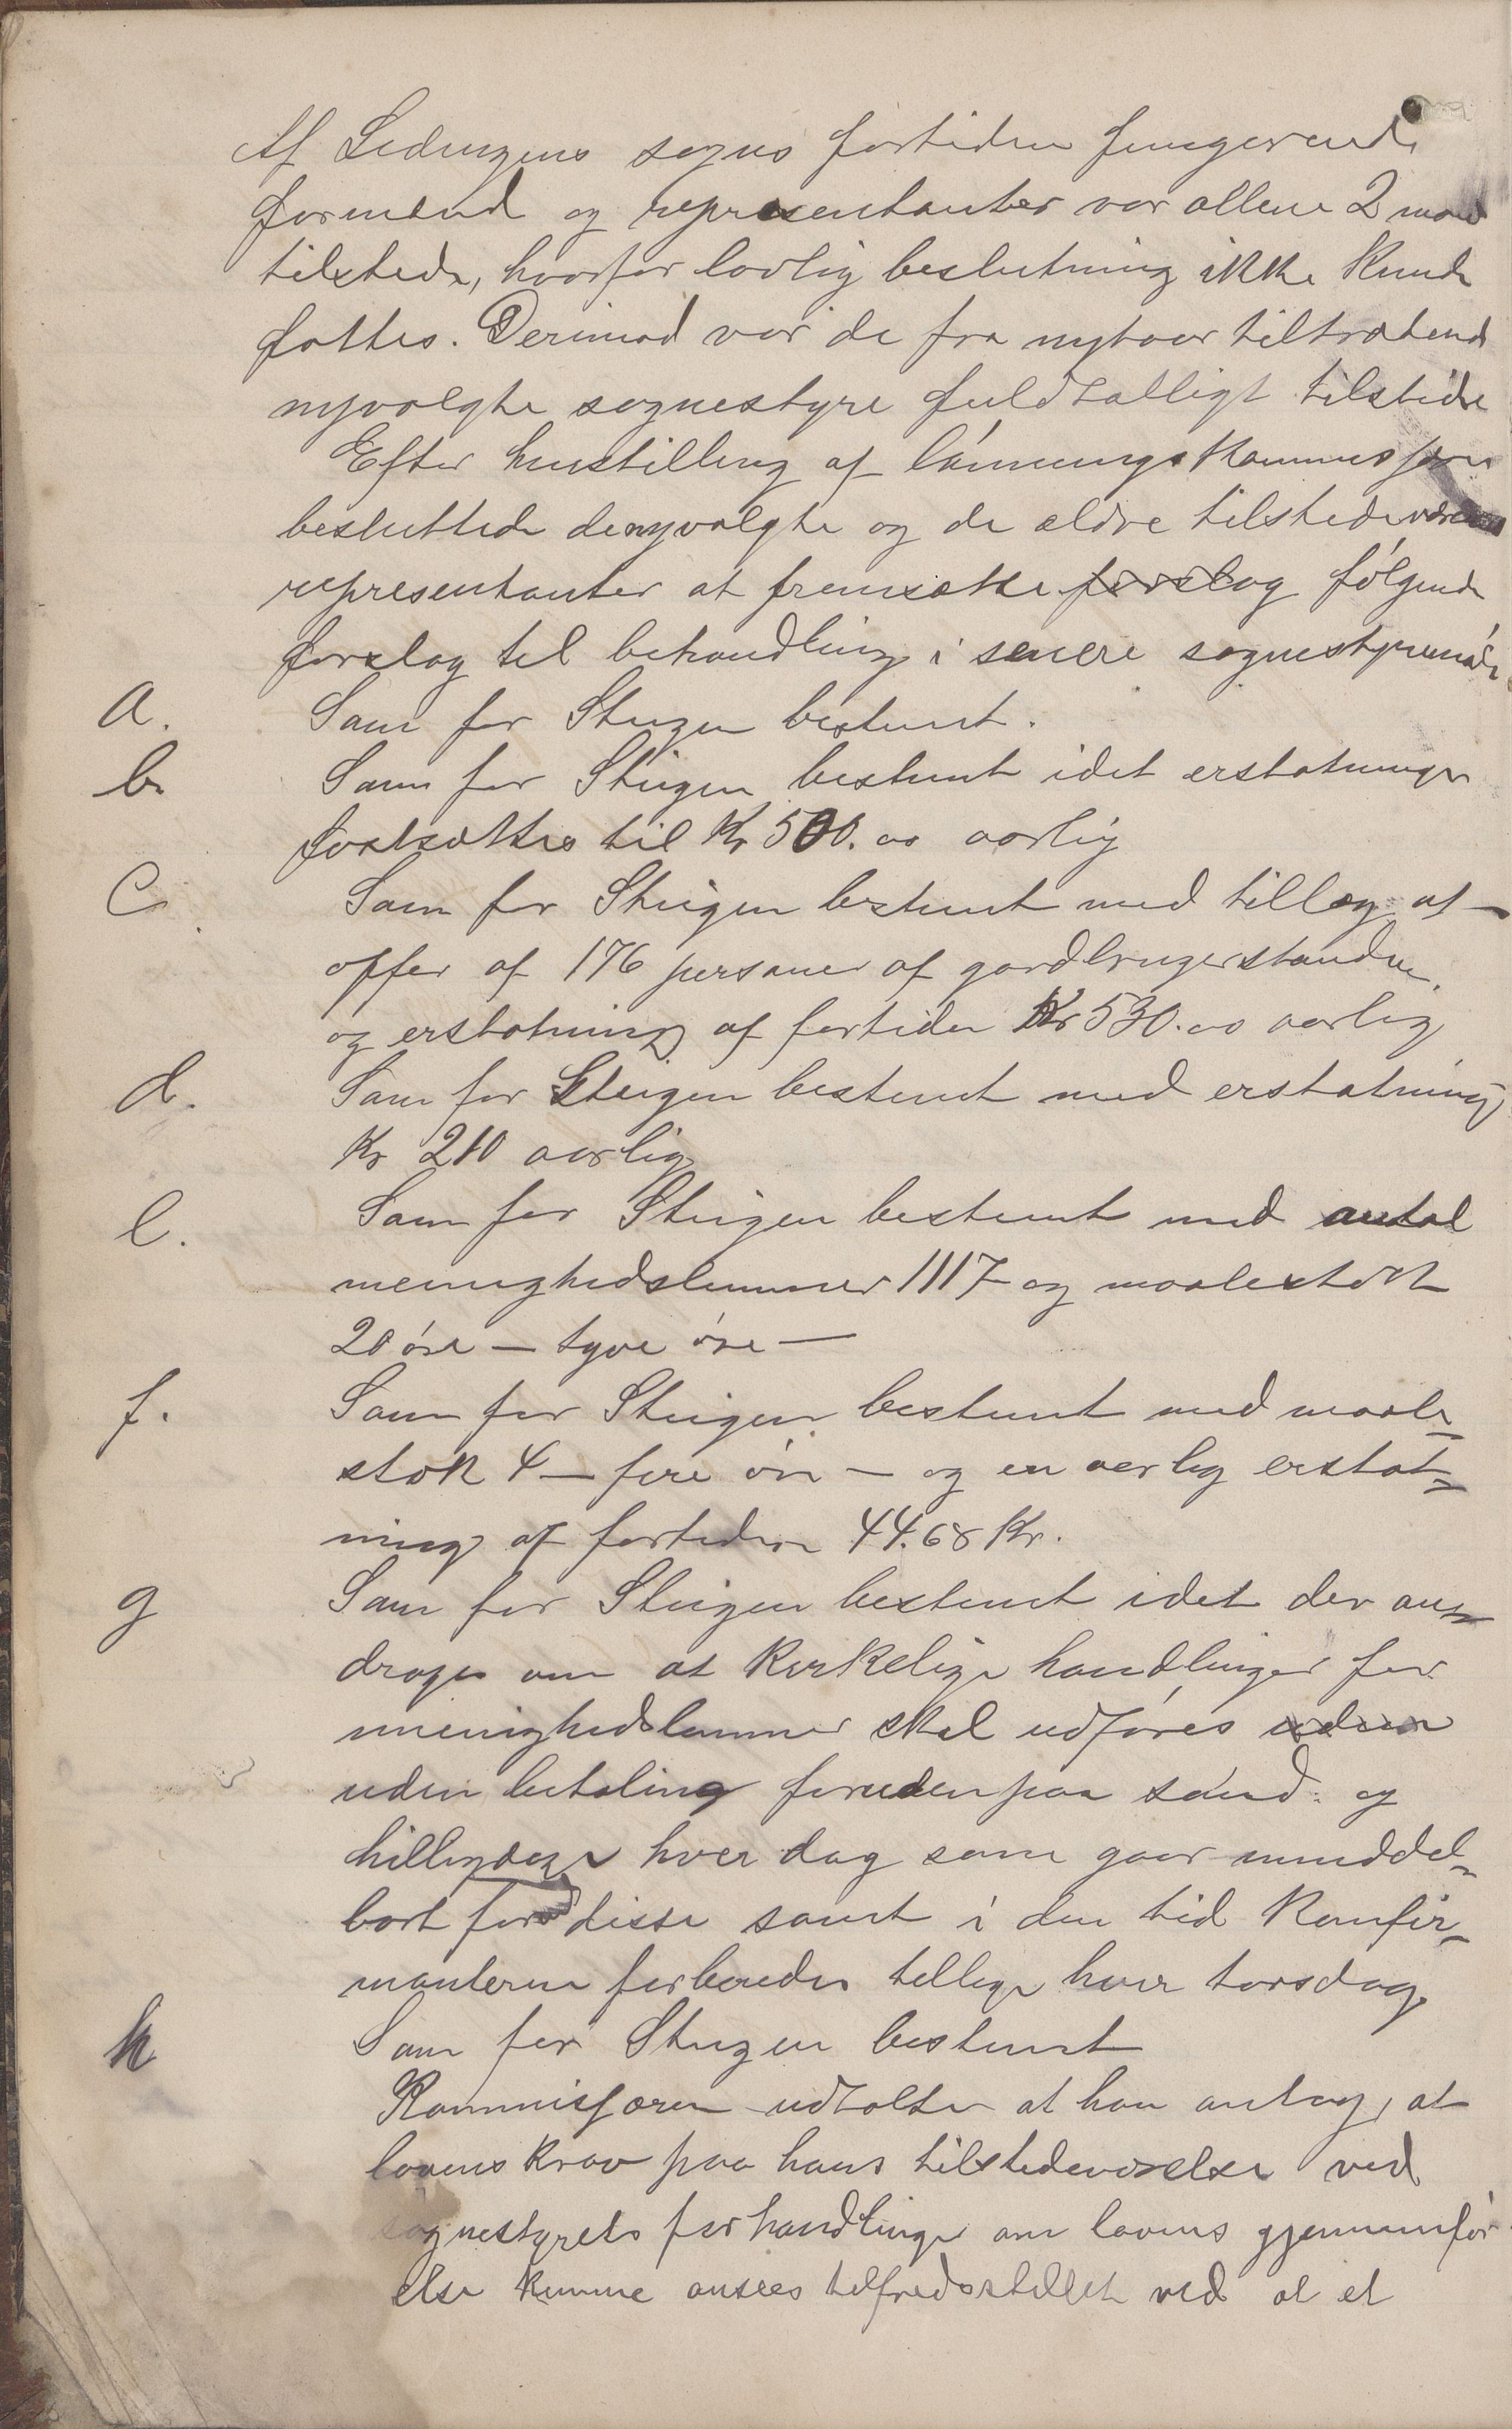 Af Ledingens sogns fortiden fungerende
formænd og representanter var allene 2 mænd
tilstede, hvorfor lovlig beslutning ikke kunde
fattes. Derimod var de fra nytaar tiltrædende
nyvalgte sognestyre fuldtalligt tilstede
Efter henstilling af lønningskommisjonen
besluttede de nyvalgte og de ældre tilstedeværende
representanter at fremsætte forslag følgende
forslag til behandling i senere sognestyremøde
a. Som for Steigen bestemt.
b. Som for Steigen bestemt idet erstatningen
fastsættes til Kr 500.00 aarlig
c. Som for Steigen bestemt med tillæg at
offer af 176 personer af gaardbrugerstanden
og erstatning af fortiden Kr 530.00 aarlig
d. Som for Steigen bestemt med erstatning
Kr 210 aarlig
e. Som for Steigen bestemt med antal
menighedslemmer 1117 og maalestok
20 øre – tyve øre –
f. Som for Steigen bestemt med maale-
stok 4 – fire øre – og en aarlig erstat-
ning af fortiden 44.68 Kr.
g Som for Steigen bestemt idet der an-
drages om at kirkelige handlinger for
menighedslemmer skal udføres uden
uden betaling foruden paa sønd. og
helligdage hver dag som gaar umiddel-
bart forud disse samt i den tid konfir-
manterne forberedes tillige hver torsdag.
h Som for Steigen bestemt
Kommisjæren udtalte at han antog, at
lovens krav paa hans tilstedeværelse ved
sognestyrets forhandlinger om lovens gjennemfør-
else kunne ansees tilfredsstillet ved at et